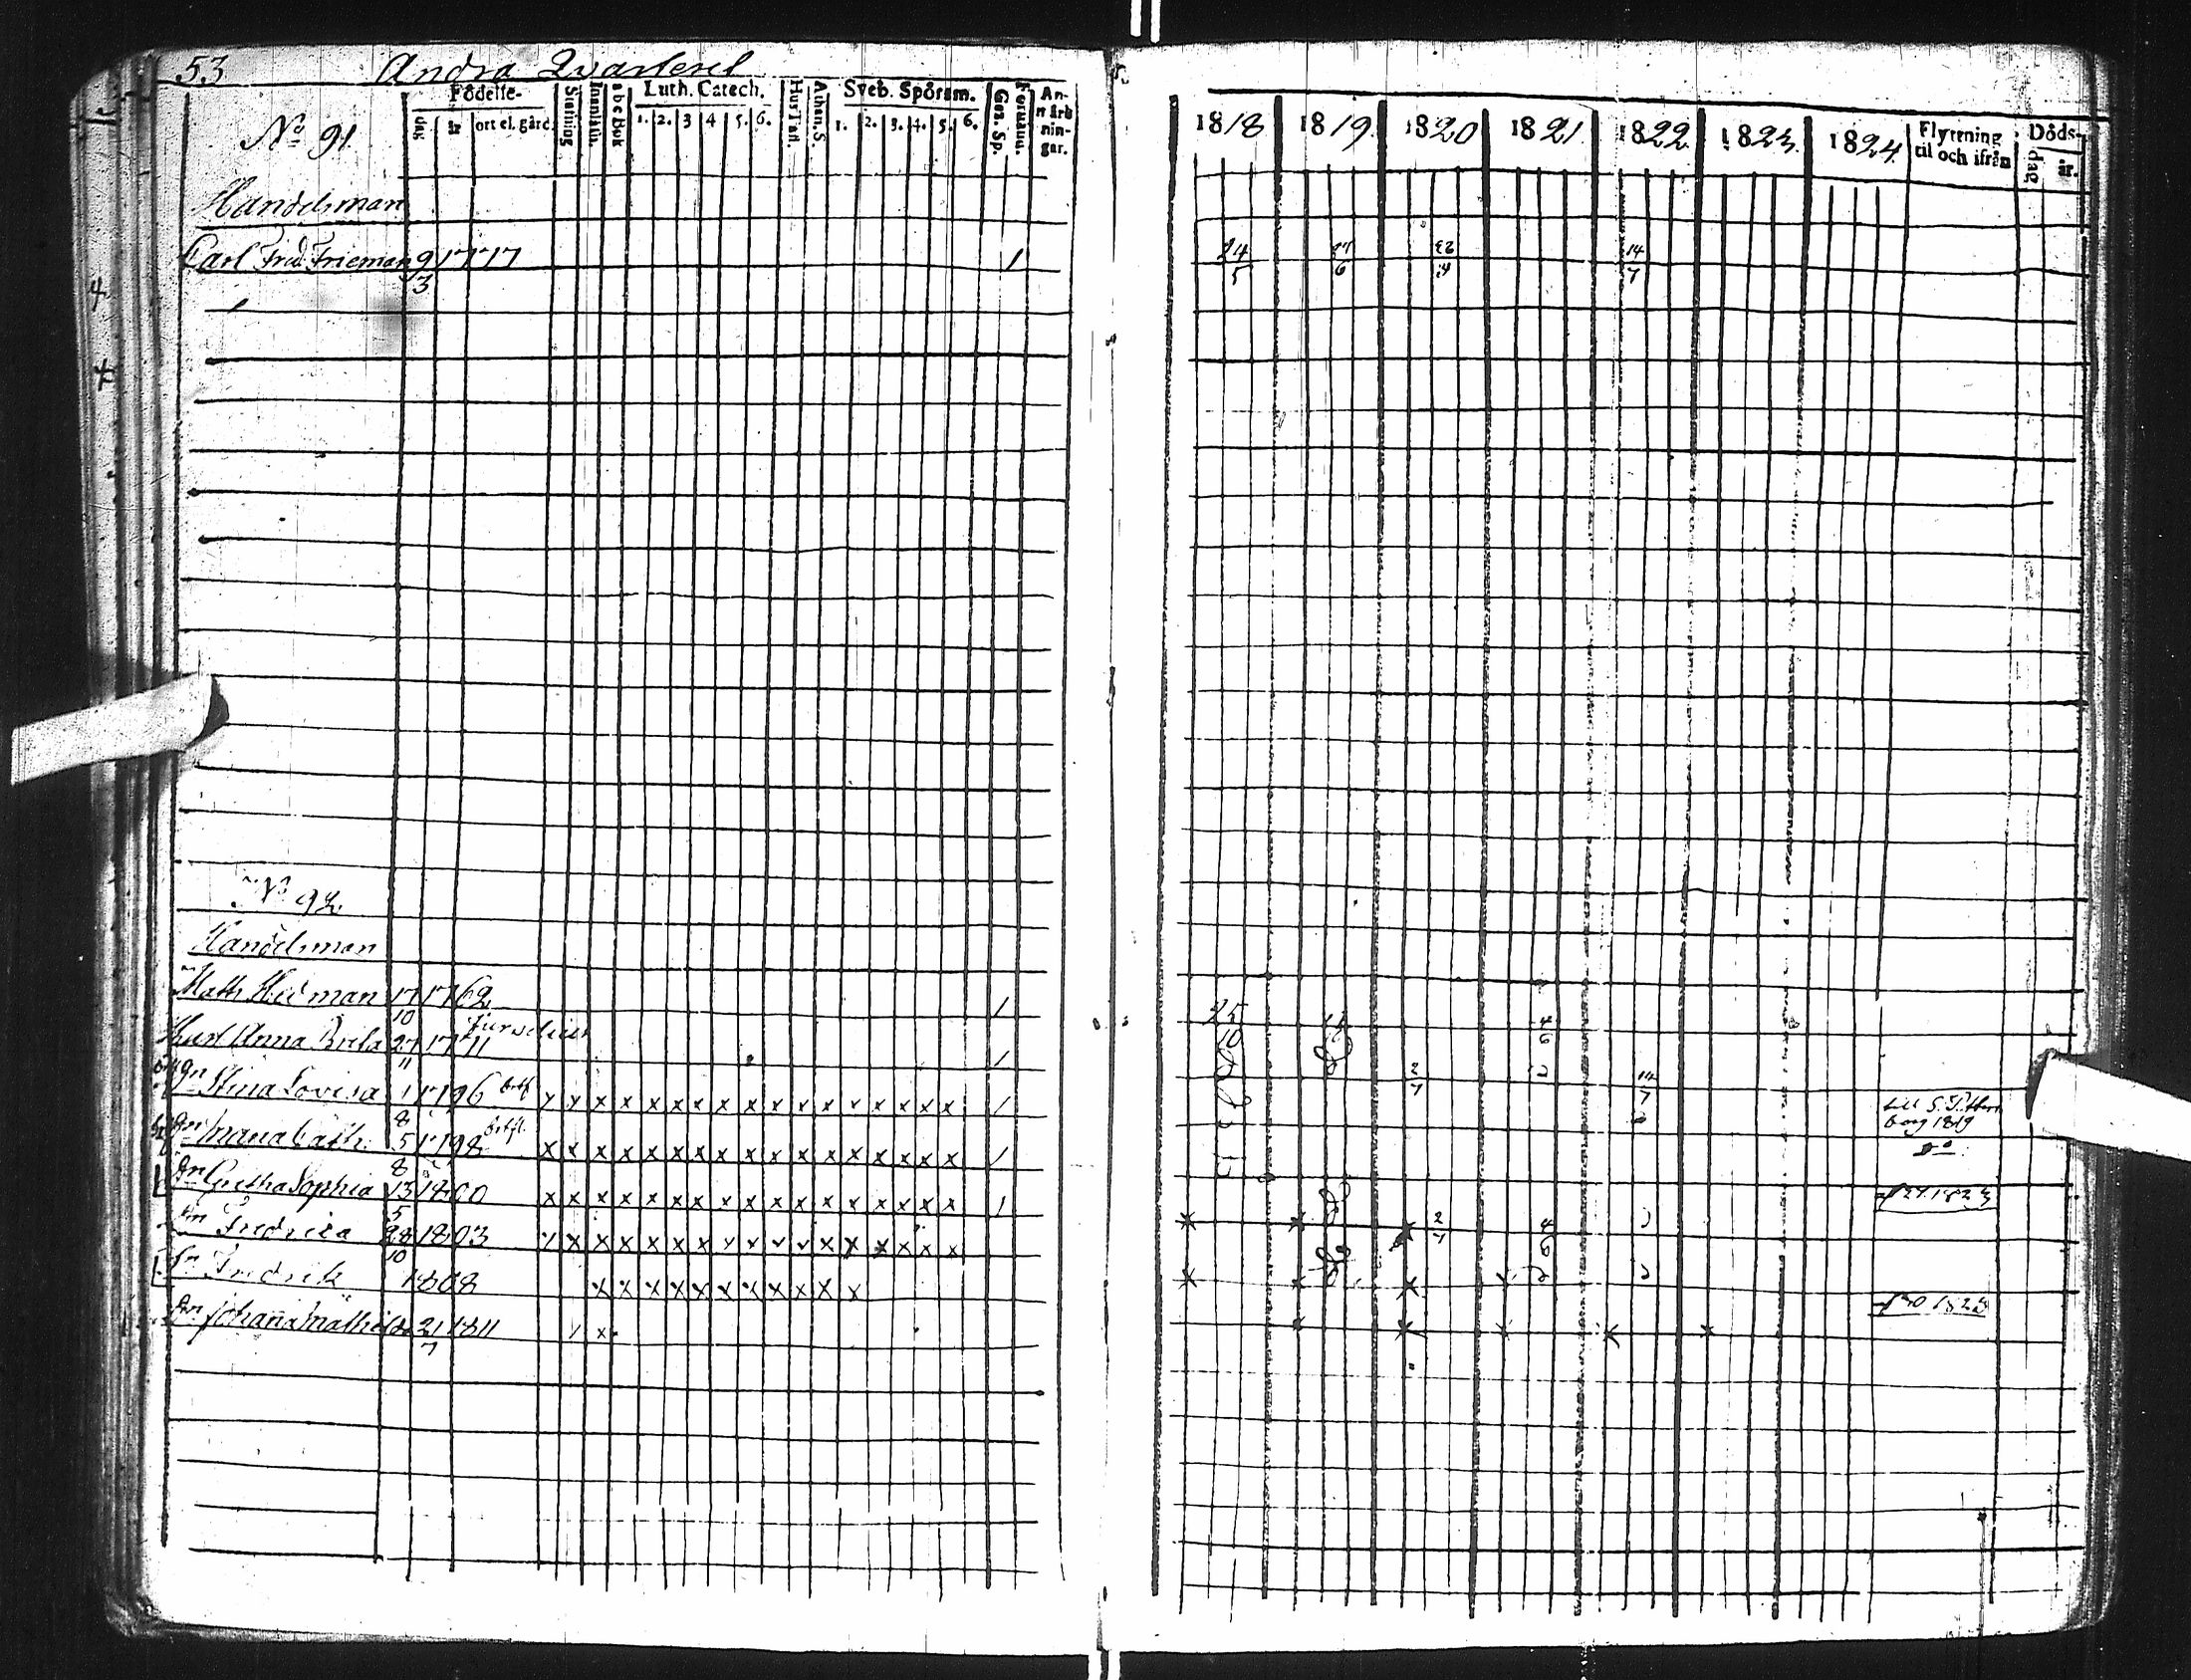 53 Andra Qvarteret
Födelse- Luth. Catech. Sveb. Spörsm. An-
märk
nin-
gar.
No 91 dag år ort el. gård. Stafning Innanläsn. abc Bok 1. 2. 3 4 5. 6. Hus Tafl. Athan. S. 1. 2. 3. 4. 5. 6. Gez. Sp.
Handelsman
Carl Fred Frieman 9/3 1777 1
No 92
Handelsman
Math Hedman 17/10 1762 1
Hust Anna Brita 27/11 1
Stina Lovisa 1/8 1796 x x x x x x x x x x x x x x x x x 1
Maria Cath. 5/8 1798 x x x x x x x x x x x x x x x x x 1
Dn Gretha Sophia 13/5 1800 x x x x x x x x x x x x x x x x x 1
Dn Fredrica 28/10 1803 x x x x x x x x x x x x x x x x x
Sn Fredrik 1808 x x x x x x x x x x x
Dn Johanna Mathilda 21/7 1811 x
1818 1819 1820 1821 1822 1823 1824 Flyttning
til och ifrån Döds-
dag år.
24/5 6 23/4 14/7
25/10 4/6
2/7 14/7
till S. Petters
borg 1819
do
x x x 2/7 4/6
x x x x
x x x x x